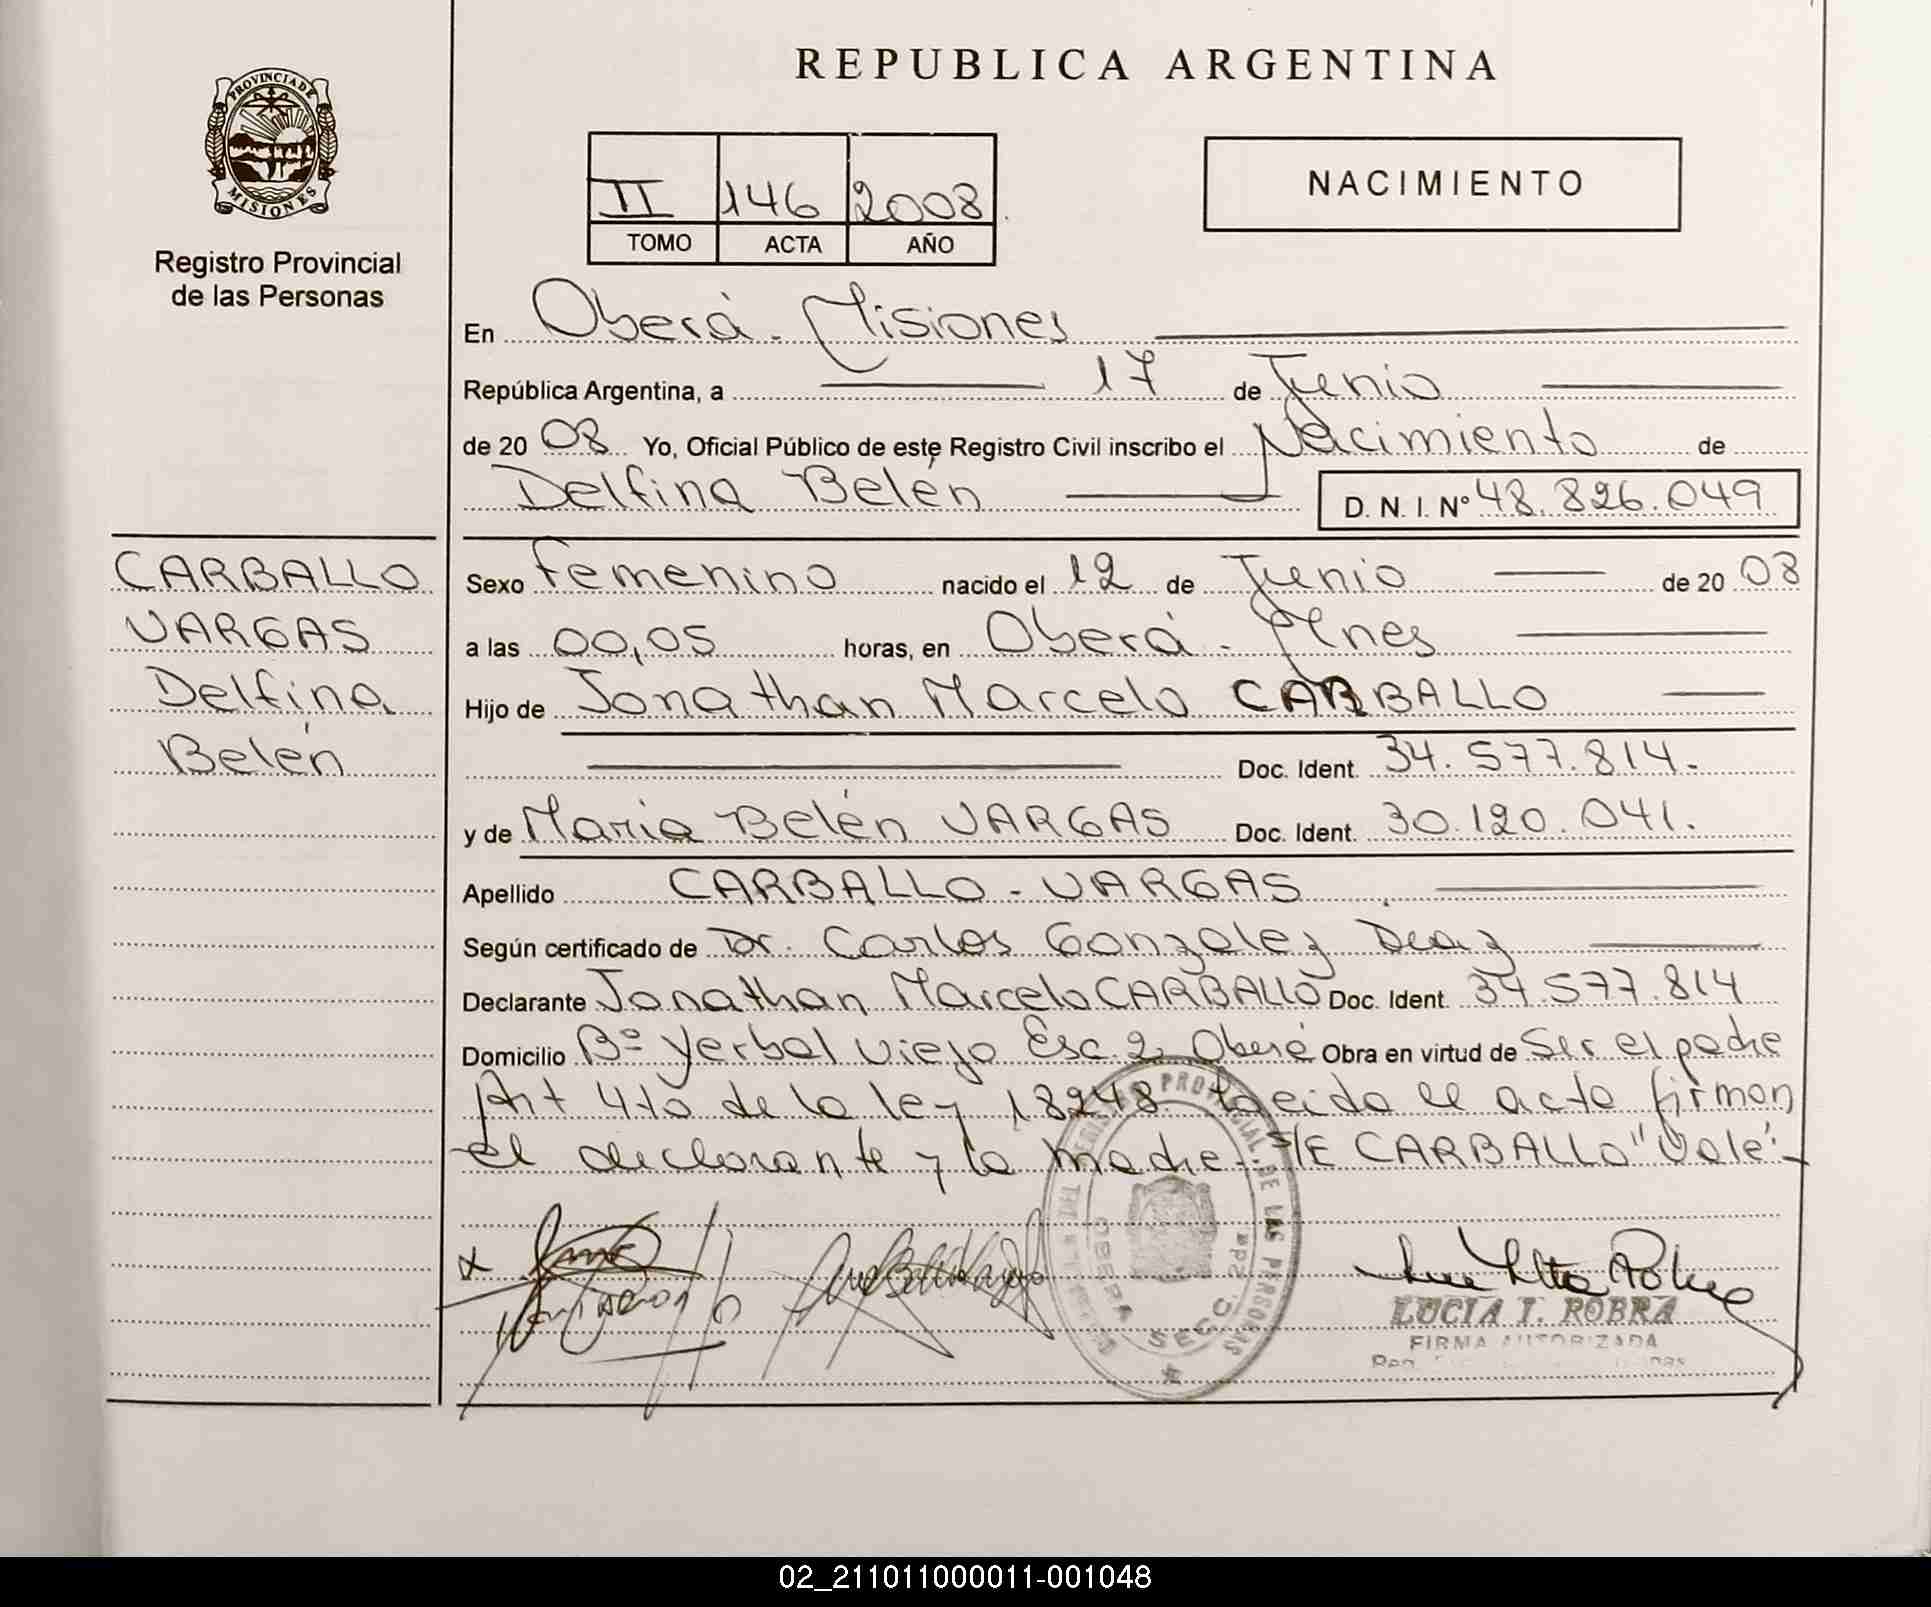 REPUBLICA ARGENTINA
PROVINCIA DE
MISIONES
Registro Provincial
de las Personas
II 146 2008
TOMO ACTA AÑO
NACIMIENTO
En Oberá - Misiones
República Argentina, a 17 de Junio
de 20 08 Yo, Oficial Público de este Registro Civil inscribo el Nacimiento de
Delfina Belén D. N. I. Nº 48.826.049
CARBALLO
VARGAS
Delfina
Belén
Sexo femenino nacido el 12 de Junio de 20 08
a las 00,05 horas, en Oberá - Mnes
Hijo de Jonathan Marcelo CARBALLO
Doc. Ident. 34.577.814.
y de Maria Belén VARGAS Doc. Ident. 30.120.041.
Apellido CARBALLO - VARGAS
Según certificado de Dr. Carlos Gonzalez Diaz
Declarante Jonathan Marcelo CARBALLO Doc. Ident. 34.577.814
Domicilio Bº Yerbal viejo Esc. 2 Oberá Obra en virtud de Ser el padre
Art 4to de la ley 18248. Leida el acta firman
el declarante y la madre - S/E CARBALLO "Vale".-
PROVINCIAL DE LAS PERSONAS
OBERA SECC. 2da
LUCIA I. ROBRA
FIRMA AUTORIZADA
02_211011000011-001048